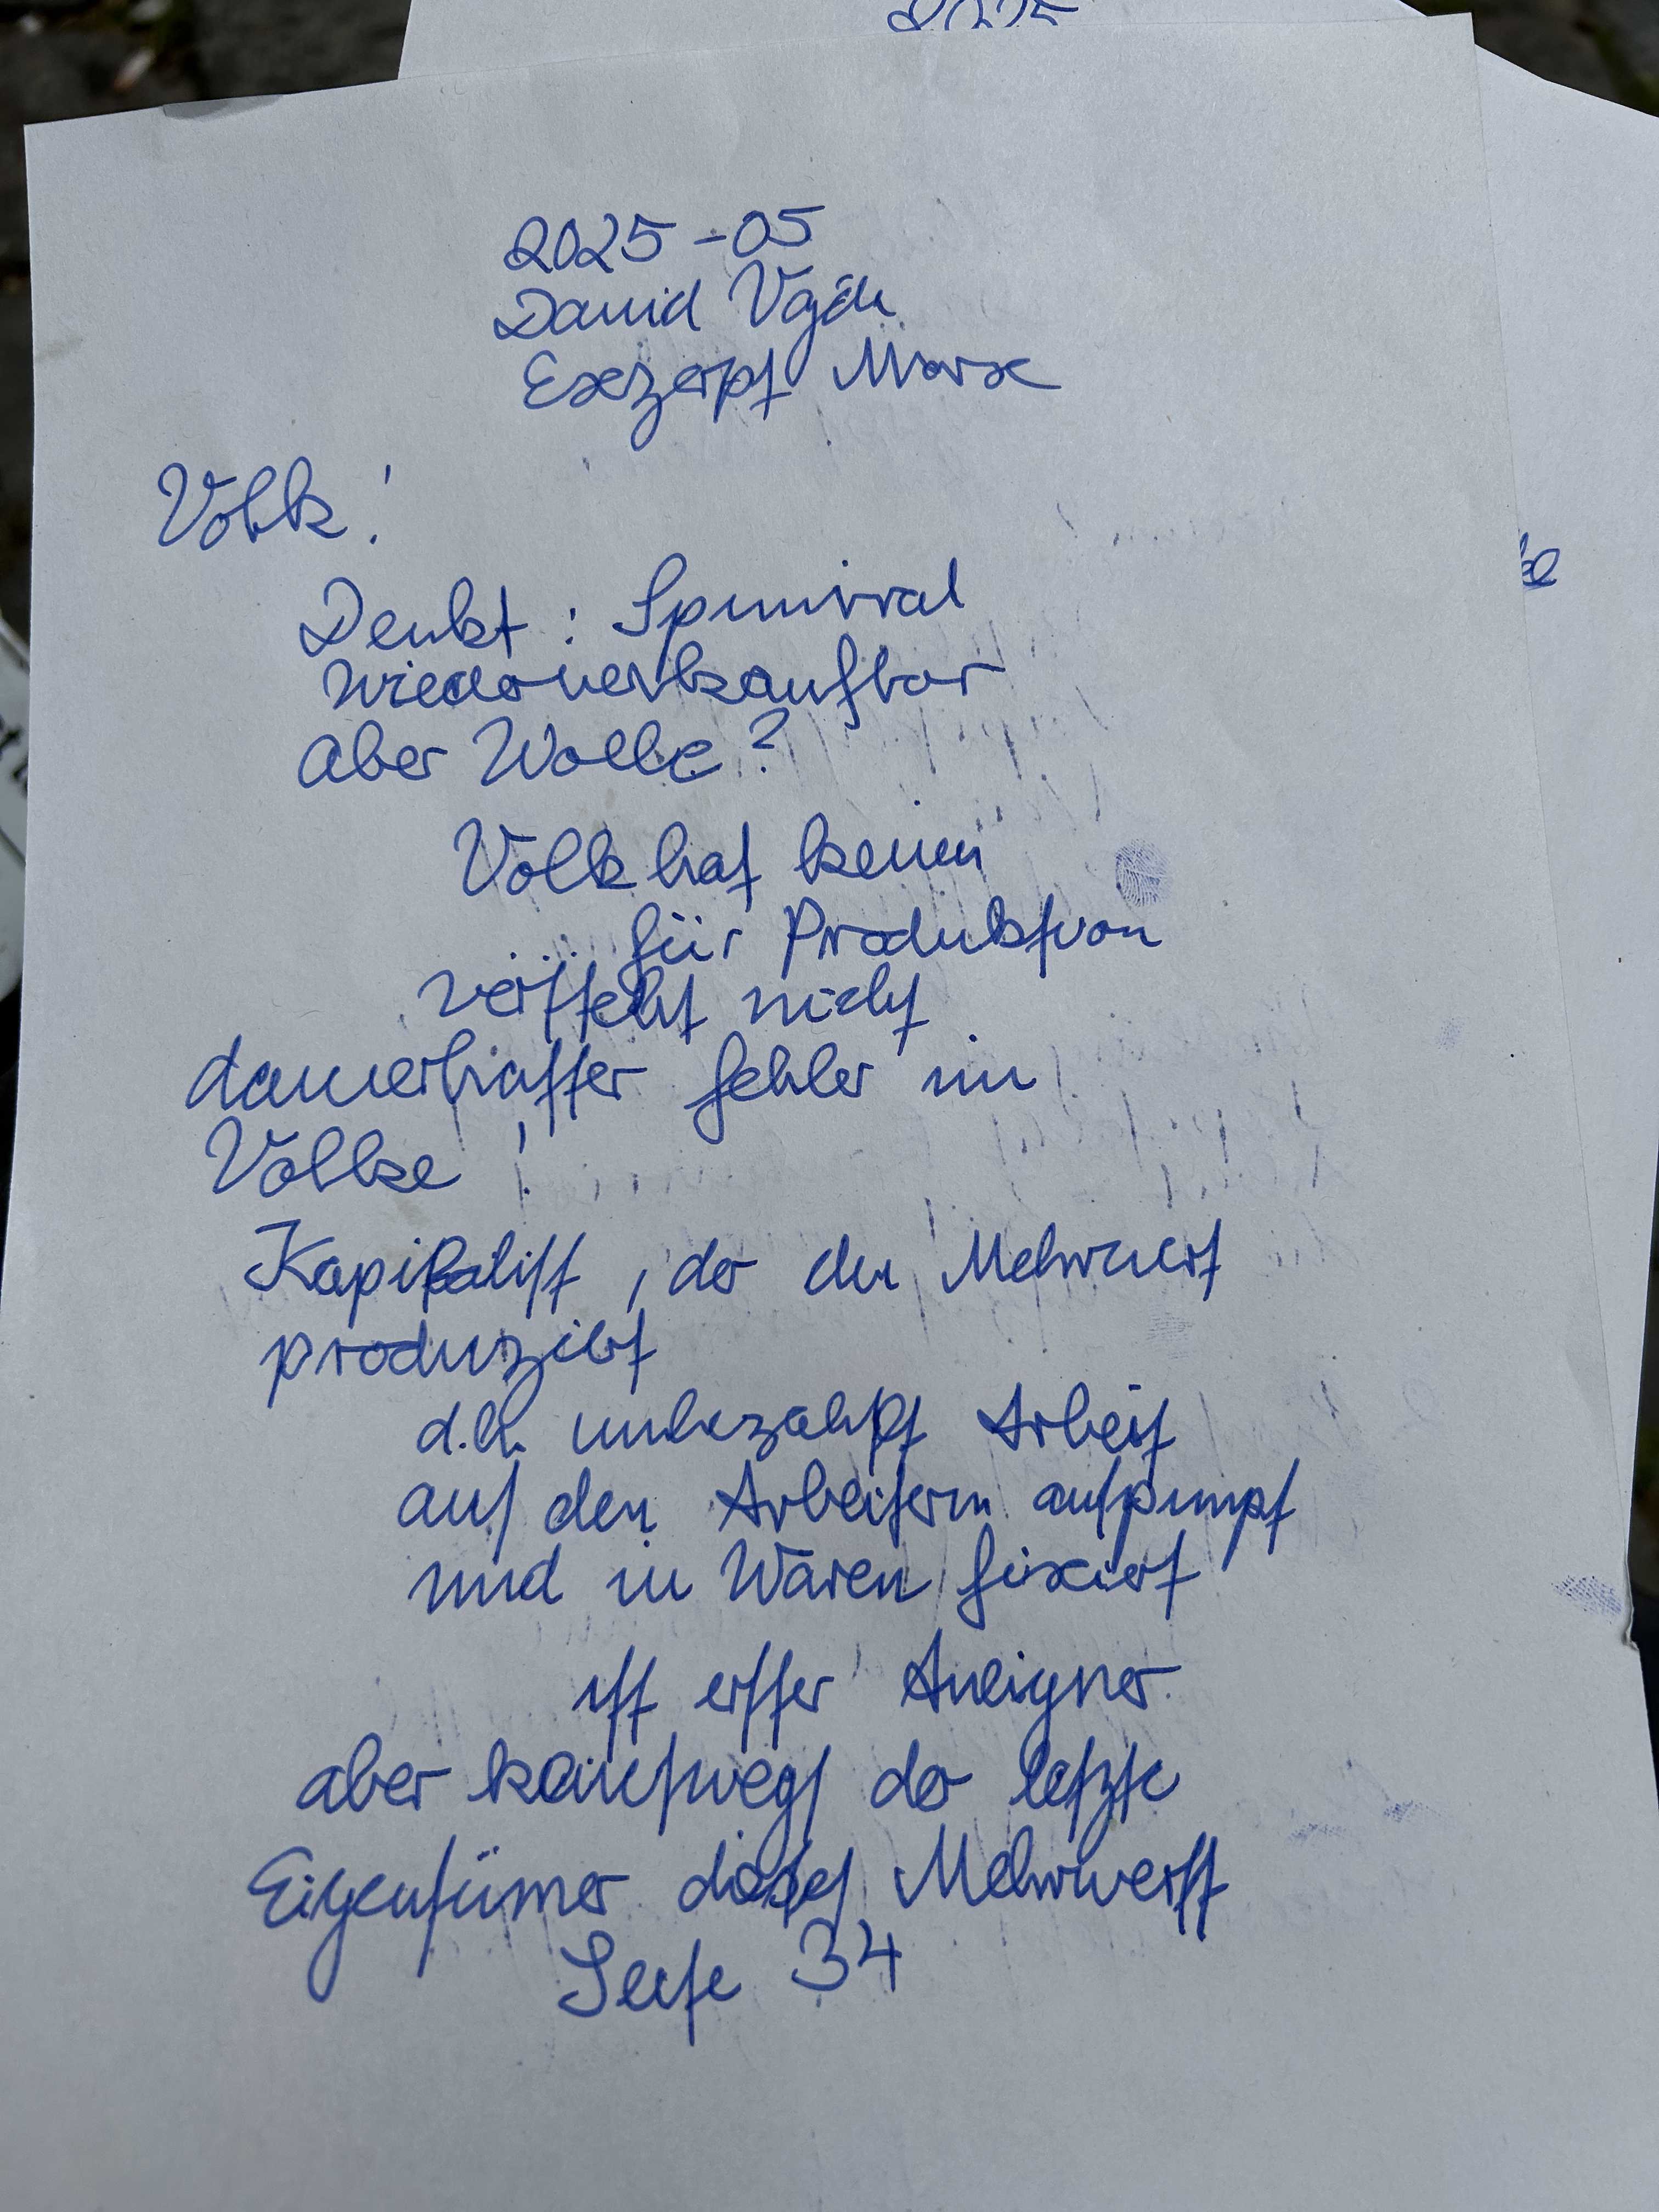 2025
2025-05
David
Exzerpt Marx
Volk!
Denkt: Spinnrad
wiederverkaufbar
aber Wolle?
Volk hat keinen
für Produktion
versteht nicht
dauerhafter Fehler im
Volke!
Kapitalist, der den Mehrwert
produziert
d.h. unbezahlt Arbeit
aus den Arbeitern auspumpt
und in Waren fixiert
ist erster Aneigner
aber keinswegs der letzte
Eigentümer dieses Mehrwerts
Seite 34